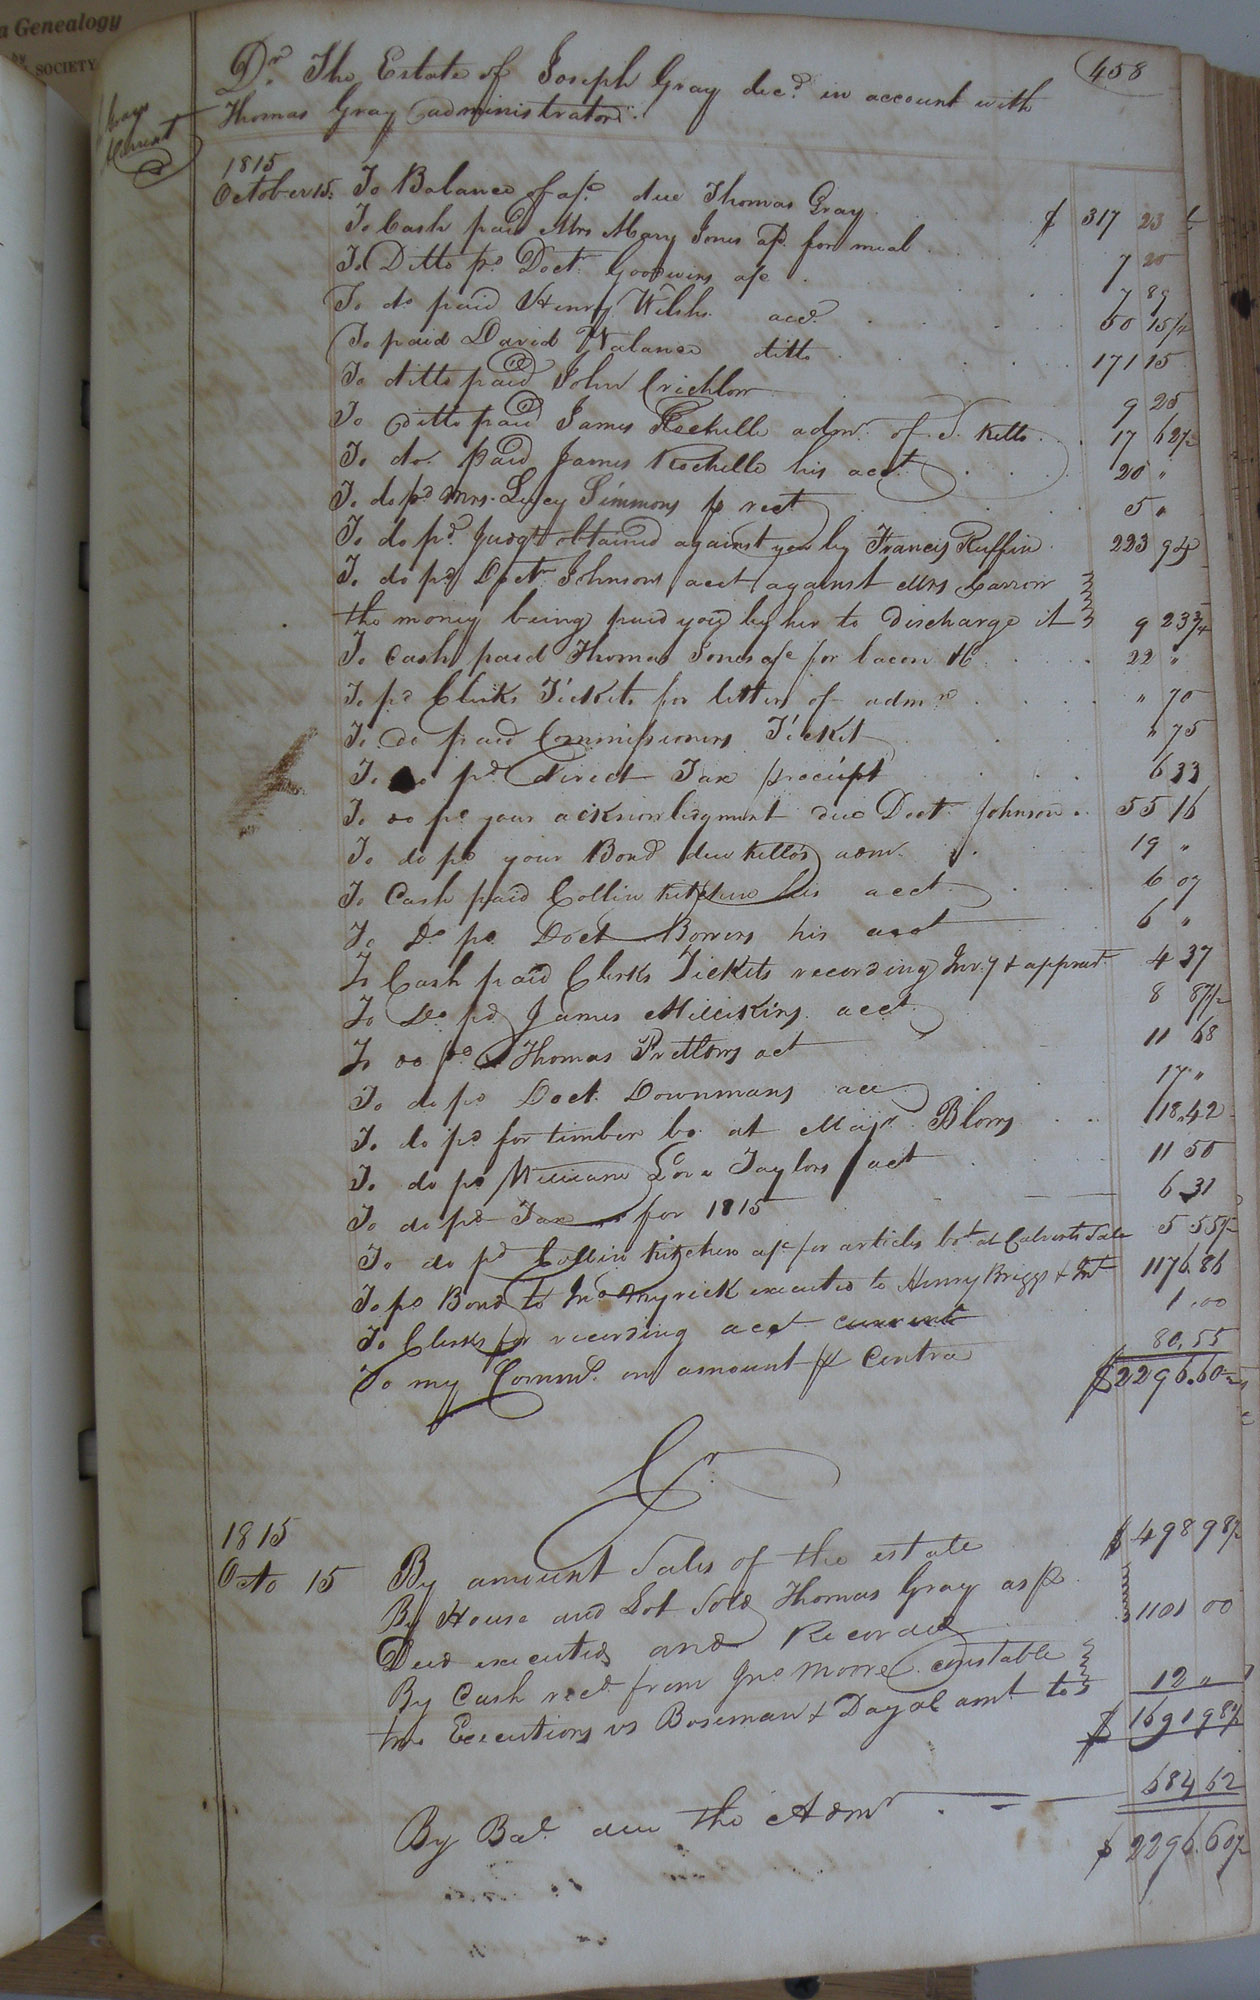 a Genealogy
by
SOCIETY
458
Dr. The Estate of Joseph Gray decd. in account with
Thomas Gray administrator.
Grays
Account
1815
October 15. To Balance of a/c. due Thomas Gray $ 317 23
To Cash paid Mrs Mary Jones a/c. for meal 7 20
To Ditto pd. Doct. Goodwins a/c 7 89
To do paid Henry Welsh. acct. 60 15/4
To paid David Walance ditto 171 15
To ditto paid John Crichlow 9 25
To ditto paid James Rochelle adm. of J. Kello 17 62 1/2
To do. paid James Rochelle his acct. 20 "
To do pd Mrs. Lucy Simmons p rect 5 "
To do pd. Judgt obtained against you by Francis Ruffin 223 94
To do pd Doct. Johnsons acct against Mrs Carrow
the money being paid you by her to discharge it 9 23 3/4
To Cash paid Thomas Jones a/c for bacon &c 22 "
To pd Clerks Tickets for letters of admn " 70
To do paid Commissioners Ticket " 75
To do pd direct Tax p receipt 6 33
To do pd your acknowledgment due Doct. Johnson 55 16
To do pd your Bond due Kello's adm. 19 "
To Cash paid Collin Kitchen his acct 6 07
To Do pd. Doct Bowers his acct 6 "
To Cash paid Clerks Tickets recording Invy & apprast 4 37
To Do pd James Millikins acct. 8 87 1/2
To do pd Thomas Pretlows act 11 68
To do pd Doct. Downmans acc 17 "
To do pd for timber bo. at Majr. Blows 18.42
To do pd William Taylors act 11 50
To do pd Tax for 1815 6 31
To do pd Collin Kitchen a/c for articles bot at Calverts Sale 5 55 1/2
To pd Bond to Jno Myrick executed to Henry Briggs & Int 1176.86
To Clerks for recording acct current 1.00
To my Commn. on amount p Contra 80.55
$2296.60 1/2
Cr.
1815
Octo 15 By amount Sales of the estate $ 498 98 1/2
By House and Lot Sold Thomas Gray as p
Deed executed and Recorded 1101 00
By Cash recd. from Jno Moore constable
two Executions vs Boseman & Dayal amt. to 12 "
$ 1691 98 1/2
By Bal. due the Admr 684 62
$ 2296.60 1/2